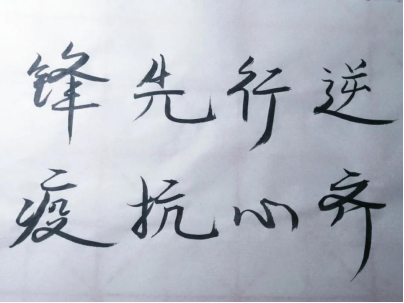 逆行先锋
齐心抗疫